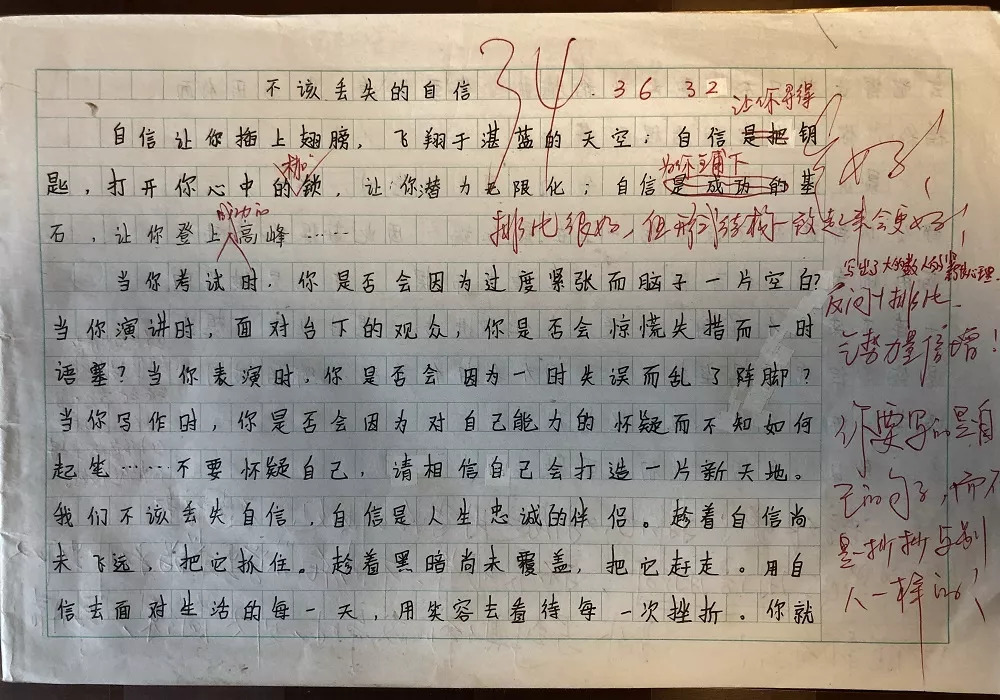 不该丢失的自信
34
36 32
让你寻得
自信让你插上翅膀，飞翔于湛蓝的天空；自信是把钥
为你主角下
匙，打开你心中的锁，让你潜力无限化；自信是成功的基
成功的
石，让你登上高峰……
好！
排比很好，但形式结构一致起来会更好！
当你考试时，你是否会因为过度紧张而脑子一片空白？
写出了大多数人的紧张心理
当你演讲时，面对台下的观众，你是否会惊慌失措而一时
反问排比
气势力量倍增！
语塞？当你表演时，你是否会因为一时失误而乱了阵脚？
当你写作时，你是否会因为对自己能力的怀疑而不知如何
起笔……不要怀疑自己，请相信自己会打造一片新天地。
我们不该丢失自信，自信是人生忠诚的伴侣。趁着自信尚
未飞远，把它抓住。趁着黑暗尚未覆盖，把它赶走。用自
信去面对生活的每一天，用笑容去看待每一次挫折。你就
你要写的是自
己的句子，而不
是抄抄与别
人一样的！